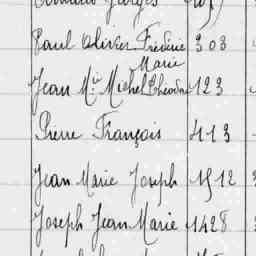 Paul Olivier Frédéric 303
Marie
Jean M.ie Michel Théodore 123
Pierre François 413
Jean Marie Joseph 1512
Joseph Jean Marie 1428